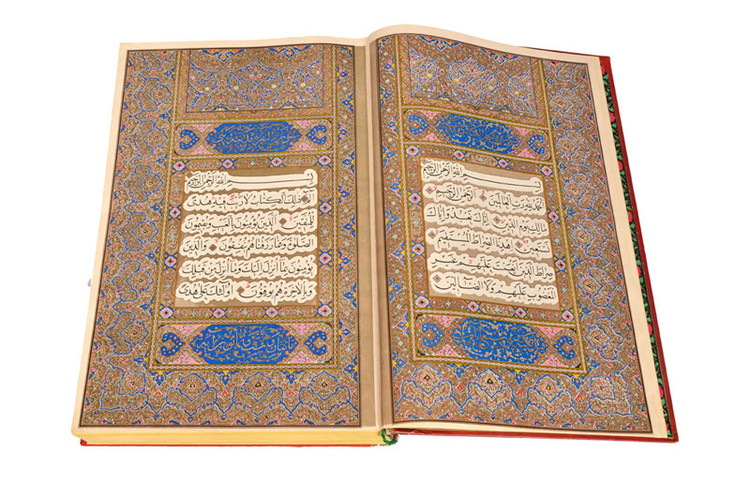 بسم الله الرحمن الرحيم
الحمد لله رب العالمين الرحمن الرحيم
مالك يوم الدين إياك نعبد وإياك
نستعين اهدنا الصراط المستقيم
صراط الذين أنعمت عليهم غير
المغضوب عليهم ولا الضالين
بسم الله الرحمن الرحيم
الم ذلك الكتاب لا ريب فيه هدى
للمتقين الذين يؤمنون بالغيب ويقيمون
الصلوة ومما رزقناهم ينفقون والذين
يؤمنون بما أنزل إليك وما أنزل من قبلك
وبالآخرة هم يوقنون أولئك على هدى